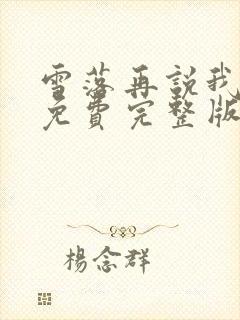 雪落再說我
免費完整版
楊念群